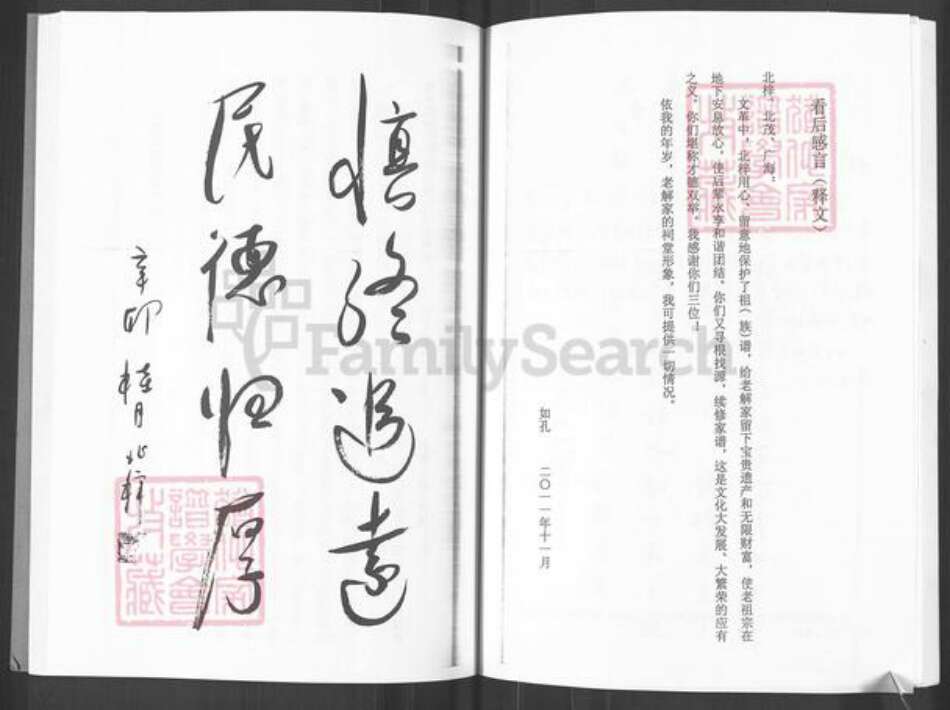 看后感言（释文）
北梓、北茂、广海：
文革中，北梓用心、留意地保护了祖（族）谱，给老解家留下宝贵遗产和无限财富，使老祖宗在
地下安息放心，使后辈永享和谐团结。你们又寻根找源，续修家谱，这是文化大发展、大繁荣的应有
之义。你们堪称才德双举。我感谢你们三位！
依我的年岁，老解家的祠堂形象，我可提供一切情况。
如孔 二〇一一年十一月
慎终追远
民德归厚
辛卯桂月北梓
譜學會
收藏
FamilySearch